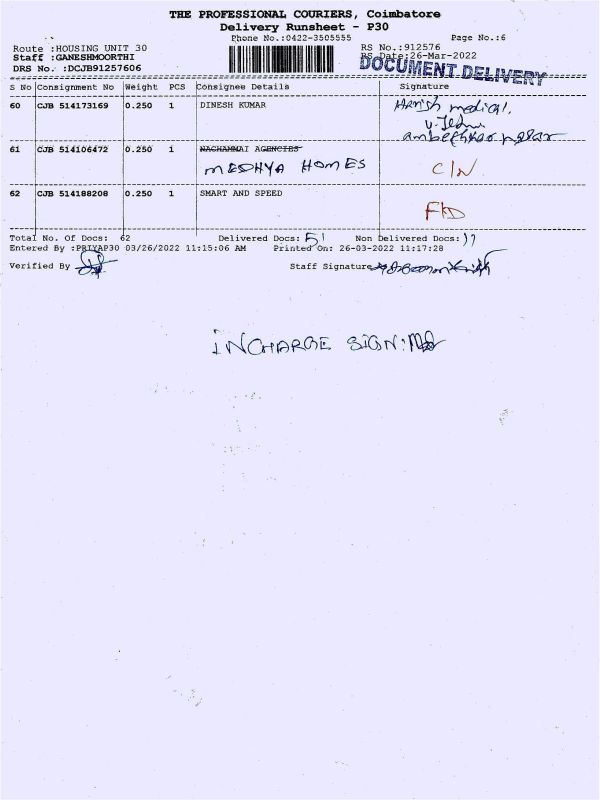 THE PROFESSIONAL COURIERS, Coimbatore
Delivery Runsheet - P30
Phone No.:0422-3505555 Page No.:6
Route :HOUSING UNIT 30 RS No.:912576
Staff :GANESHMOORTHI RS Date:26-Mar-2022
DRS No. :DCJB91257606 DOCUMENT DELIVERY
S No Consignment No Weight PCS Consignee Details Signature
60 CJB 514173169 0.250 1 DINESH KUMAR Harish medical,
61 CJB 514106472 0.250 1 NACHAMMAI AGENCIES
MEDHYA HOMES C/N
62 CJB 514188208 0.250 1 SMART AND SPEED
Total No. Of Docs: 62 Delivered Docs: 51 Non Delivered Docs: 11
Entered By :PRIYAP30 03/26/2022 11:15:06 AM Printed On: 26-03-2022 11:17:28
Verified By Staff Signature
INCHARGE SIGN: